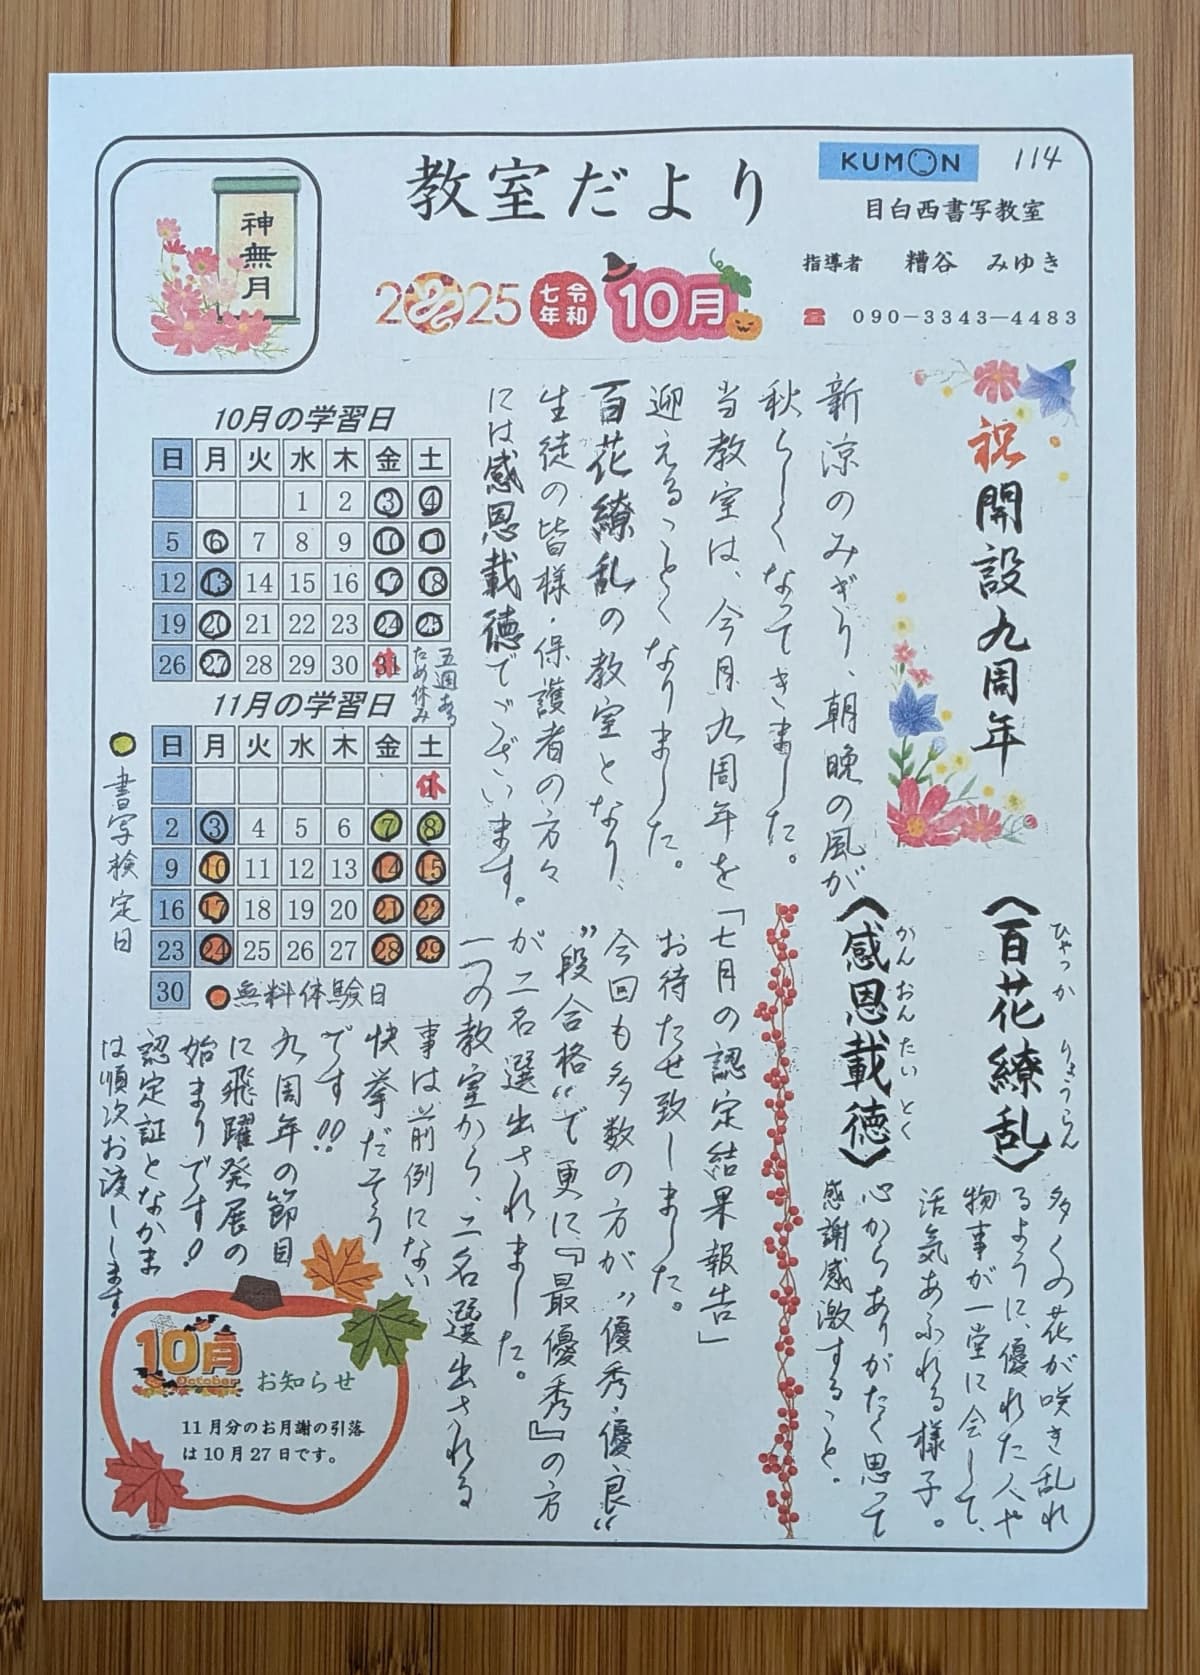 教室だより
KUMON
114
目白西書写教室
指導者 糟谷 みゆき
☎ 090-3343-4483
神無月
2025
令和七年
10月
祝開設九周年
新涼のみぎり、朝晩の風が
秋らしくなってきました。
当教室は、今月九周年を
迎えることくなりました。
百花繚乱の教室となり、
生徒の皆様・保護者の方々
には感恩載徳でございます。
10月の学習日
日 月 火 水 木 金 土
1 2 3 4
5 6 7 8 9 10 11
12 13 14 15 16 17 18
19 20 21 22 23 24 25
26 27 28 29 30 31
休
五週ある
ため休み
11月の学習日
日 月 火 水 木 金 土
1
休
2 3 4 5 6 7 8
9 10 11 12 13 14 15
16 17 18 19 20 21 22
23 24 25 26 27 28 29
30
無料体験日
書写検定日
〈百花繚乱〉
ひゃっか りょうらん
多くの花が咲き乱れ
るように、優れた人や
物事が一堂に会して、
活気あふれる様子。
〈感恩載徳〉
かんおんたいとく
心からありがたく思って
感謝感激すること。
「七月の認定結果報告」
お待たせ致しました。
今回も多数の方が〝優秀・優良〟
〝段合格〟で更に『最優秀』の方
が二名選出されました。
一つの教室から、二名選出される
事は前例にない
快挙だそう
です!!
九周年の節目
に飛躍発展の
始まりです!
認定証となかま
は順次お渡しします
10月
October
お知らせ
11月分のお月謝の引落
は10月27日です。